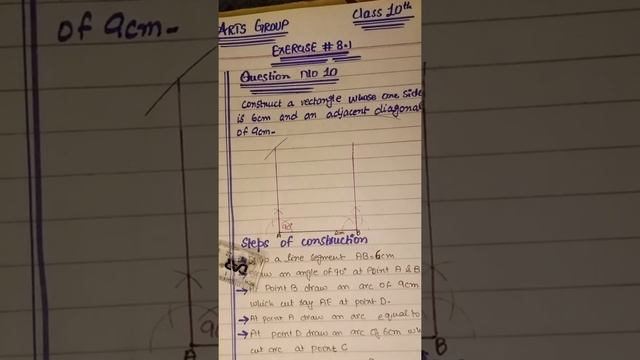 of 9cm-
ARTS GROUP
Class 10th
EXERCISE # 8.1
Question No 10
Construct a rectangle whose one side
is 6cm and an adjacent diagonal
of 9cm-
90°
A
B
Steps of construction
a line segment AB=6cm
an angle of 90° at Point A & B
Point B draw an arc of 9cm
which cut ray AF at point D.
→At point A draw an arc equal to
→At point D draw an arc of 6cm
cut arc at point C
A
B